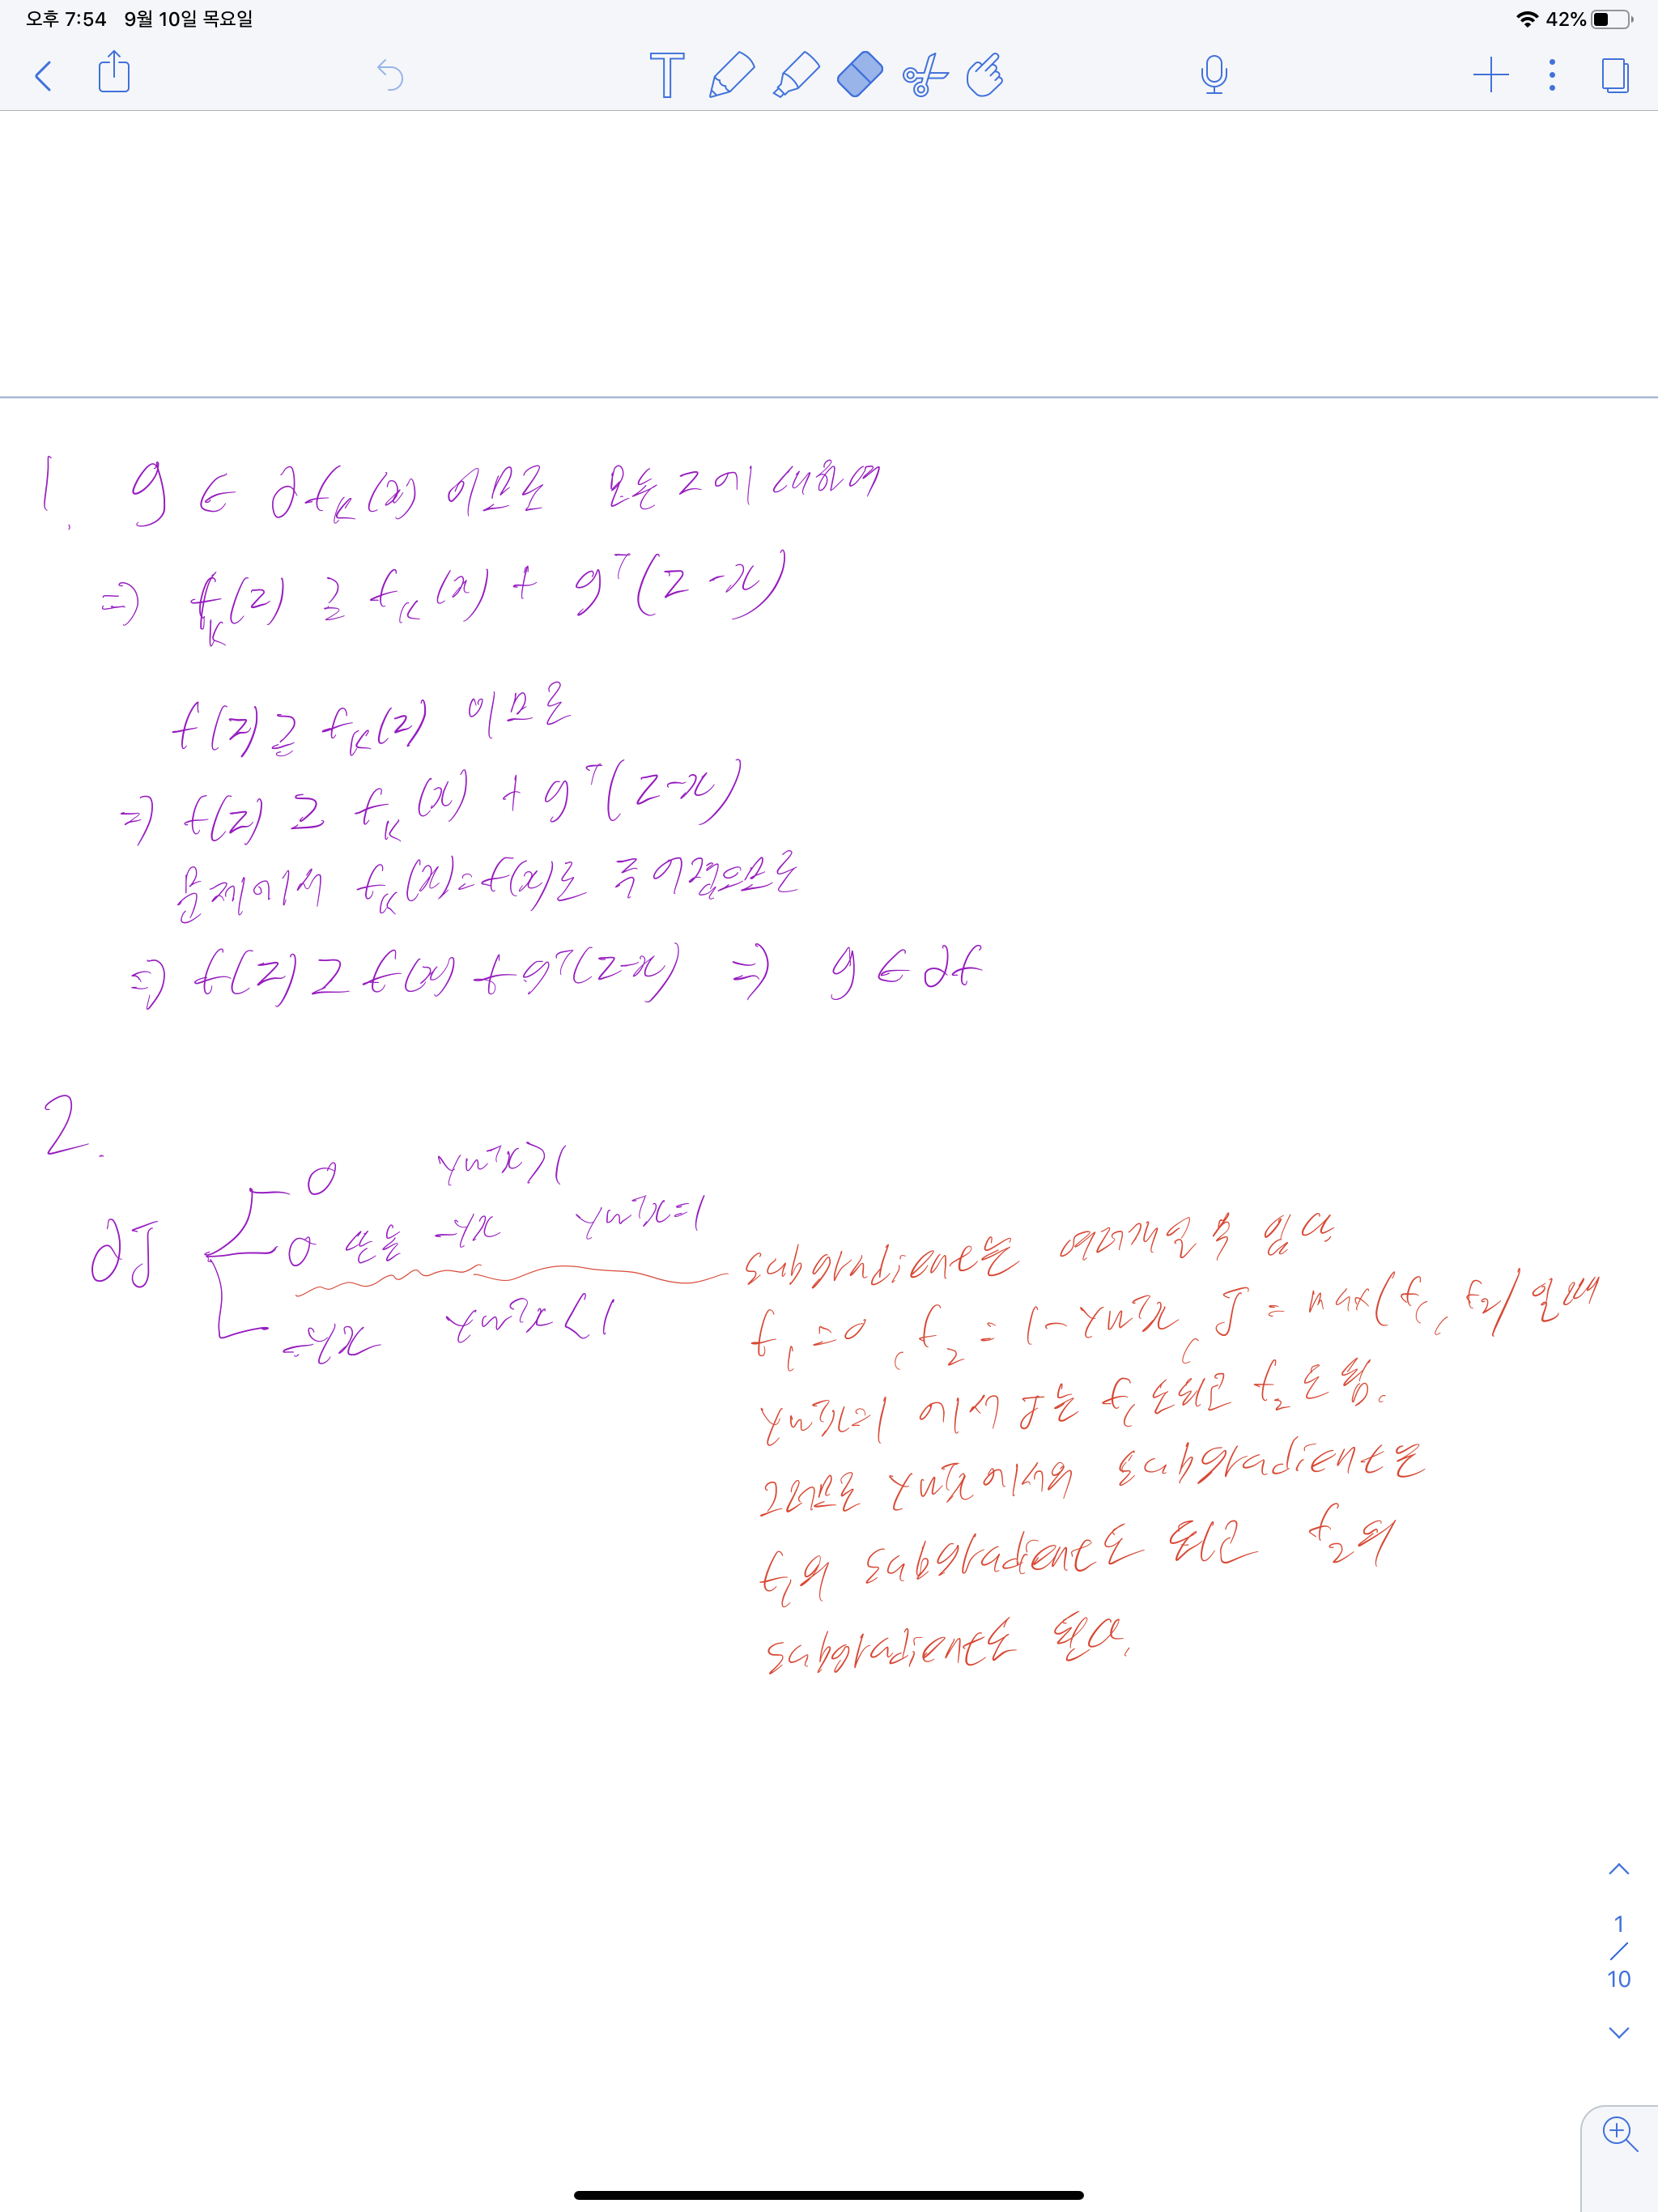 오후 7:54 9월 10일 목요일
42%
1. g ∈ ∂f_K(x) 이므로 모든 z에 대하여
⇒ f_K(z) ≥ f_K(x) + g^T(z-x)
f(z) ≥ f_K(z) 이므로
⇒ f(z) ≥ f_K(x) + g^T(z-x)
문제에서 f_K(x)=f(x)로 주어졌으므로
⇒ f(z) ≥ f(x) + g^T(z-x) ⇒ g ∈ ∂f
2.
∂J
0 yw^Tx>1
0 또는 -yx yw^Tx=1
-yx yw^Tx<1
subgradient는 여러개일 수 있다.
f_1=0, f_2=1-yw^Tx, J=max(f_1, f_2) 일때
yw^Tx=1 에서 J는 f_1도되고 f_2도 됨.
그러므로 yw^Tx에서의 subgradient는
f_1의 subgradient도 되고 f_2의
subgradient도 된다.
1
/
10